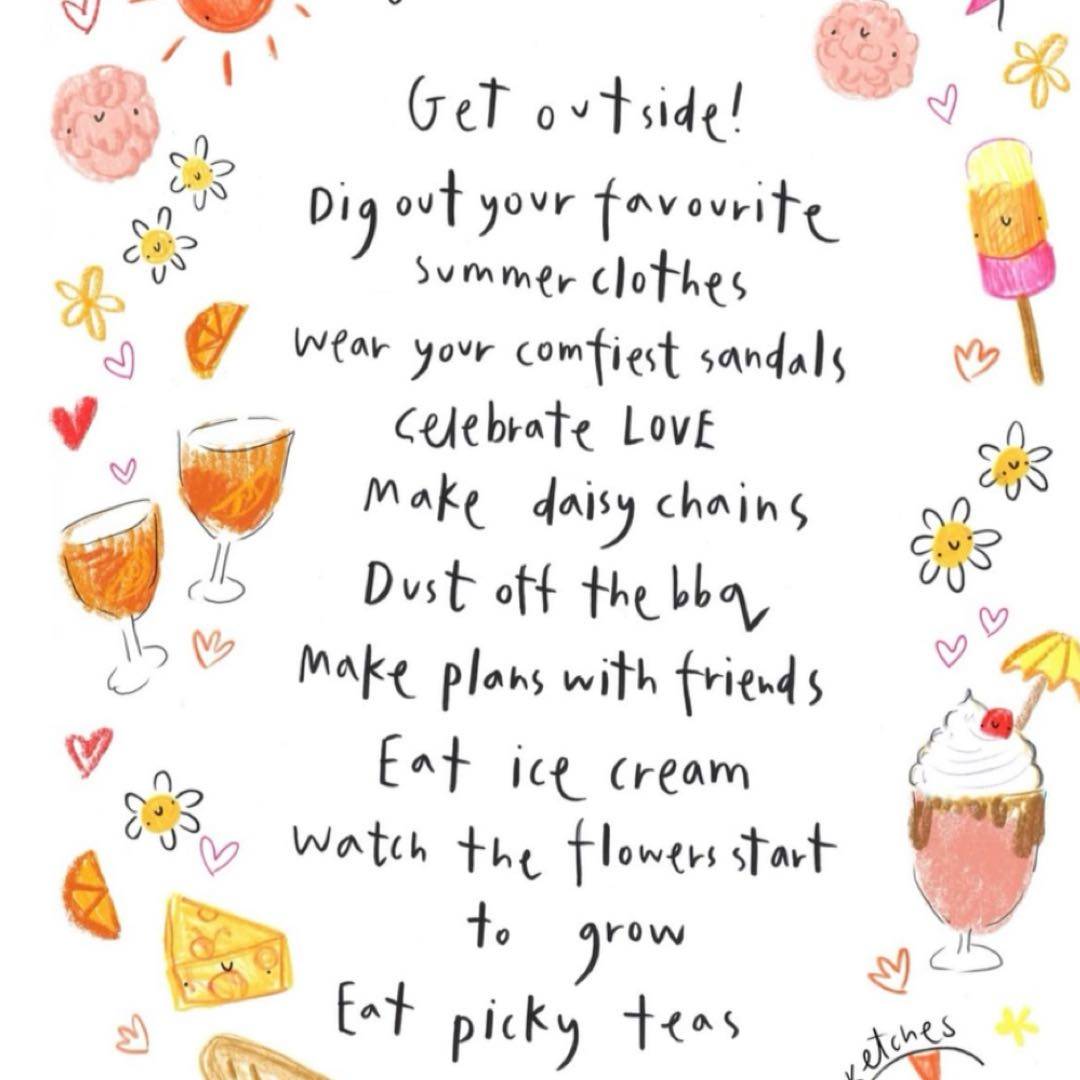 Get outside!
Dig out your favourite
summer clothes
wear your comfiest sandals
celebrate LOVE
Make daisy chains
Dust off the bbq
Make plans with friends
Eat ice cream
watch the flowers start
to grow
Eat picky teas